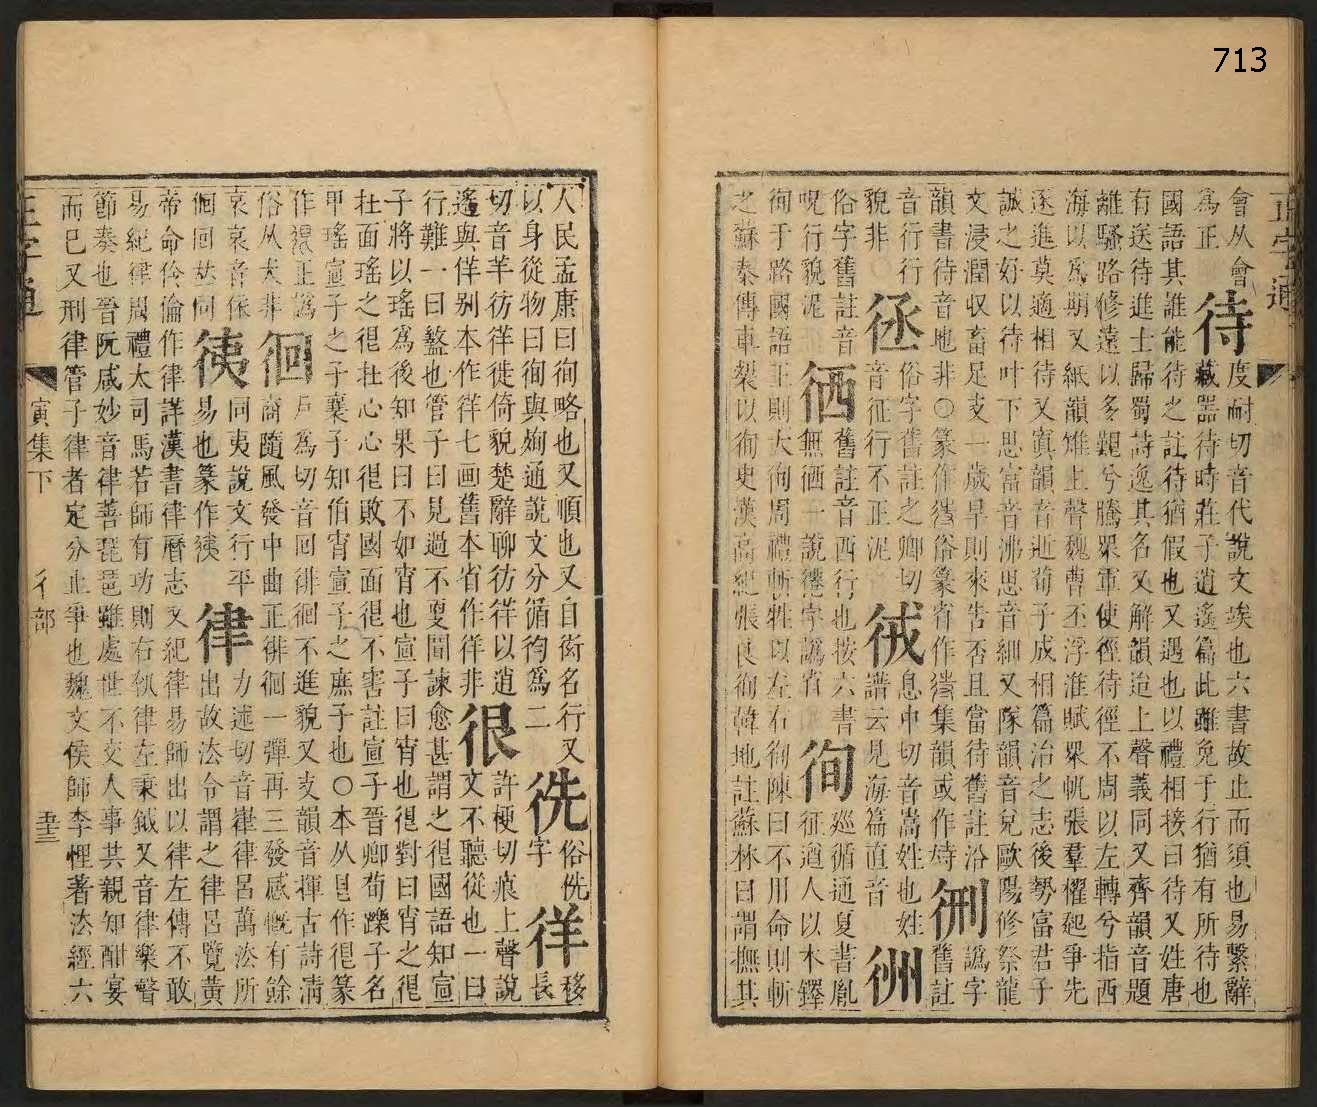 713
正字通
會从會
為正
待
度耐切音代說文竢也六書故止而須也易繫辭
藏器待時莊子逍遙篇此雖免于行猶有所待也
國語其誰能待之註待猶假也又遇也以禮相接曰待又姓唐
有送待進士歸蜀詩逸其名又解韻迨上聲義同又齊韻音題
離騷路修遠以多艱兮騰眾軍使徑待徑不周以左轉兮指西
海以為期又紙韻雉上聲魏曹丕浮淮賦眾帆張羣櫂起爭先
逐進莫適相待又寘韻音逝荀子成相篇治之志後勢富君子
誠之好以待叶下思富音沸思音細又隊韻音兌歐陽修祭龍
文浸潤収畜足支一歲旱則來告否且當待舊註沿
韻書待音地非○篆作
俗篆省作
集韻或作
𢓊
譌字
舊註
音行行
貌非○
徎
俗字舊註之卿切
音征行不正泥
𢓜
息中切音嵩姓也姓
譜云見海篇直音
㣙
俗字舊註音
呪行貌泥
徆
舊註音西行也按六書
無徆一說遷字譌省
徇
巡循通夏書胤
征遒人以木鐸
徇于路國語王則大徇周禮斬牲以左右徇陳曰不用命則斬
之蘇秦傳車裂以徇史漢高紀張良徇韓地註蘇林曰謂撫其
人民孟康曰徇略也又順也又自衒名行又
以身從物曰徇與殉通說文分循徇為二
𢓠
俗侁
字
徉
移
長
切音羊彷徉徙倚貌楚辭聊彷徉以逍
遙與佯别本作徉七画舊本省作徉非
很
許梗切痕上聲說
文不聽從也一曰
行難一曰盭也管子曰見過不更聞諫愈甚謂之很國語知宣
子將以瑤為後知果曰不如宵也宣子曰宵也很對曰宵之很
在面瑤之很在心心很敗國面很不害註宣子晉卿荀躒子名
甲瑤宣子之子襄子知伯宵宣子之庶子也○本从㫐作很篆
作
正譌
俗从犬非
徊
戶為切音回徘徊不進貌又支韻音揮古詩清
商隨風發中曲正徘徊一彈再三發感慨有餘
哀哀音依
徊回𠀤同
徚
同夷說文行平
易也篆作
律
力述切音嵂律呂萬法所
出故法令謂之律呂覽黃
帝命伶倫作律詳漢書律曆志又紀律易師出以律左傳不敢
易紀律周禮太司馬若師有功則右執律左秉鉞又音律樂聲
節奏也晉阮咸妙音律善琵琶雖處世不交人事其親知酣宴
而已又刑律管子律者定分止爭也魏文侯師李悝著法經六
正字通
寅集下
彳部
五十三